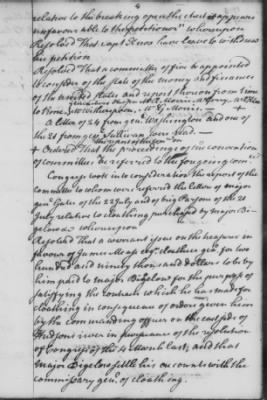 relative to the breaking open the chest is appears
unfavourable to the petitioner" whereupon
Resolved That capt Knox have leave to withdraw
his petition
Resolved That a committee of five be appointed
to consider of the State of the money and finances
of the united States and report thereon from time
to time
A letter of 26 from gen Washington and one of the
21 from gen Sullivan were read.
+ Ordered That the proceedings of the convention
of committees be referred to the foregoing comee
Congress took into consideration the report of the
committee to whom were referred the letters of major
genl Gates of the 22 July and of brig Parsons of the 21
July relative to cloathing purchased by Major Bi-
gelow & whereupon
Resolved That a warrant issue on the treasurer in
favour of James Mease esqr cloathier genl for two
hundred and ninety thousand dollars to be by
him paid to major Bigelow for the purpose of
satisfying the contracts which he has made for
cloathing in consequence of orders given him
by the commanding officer on the east side of
Hudsons river in pursuance of the resolution
of Congress of the 4 March last; and that
Major Bigelow settle his accounts with the
commissary genl of cloathing.